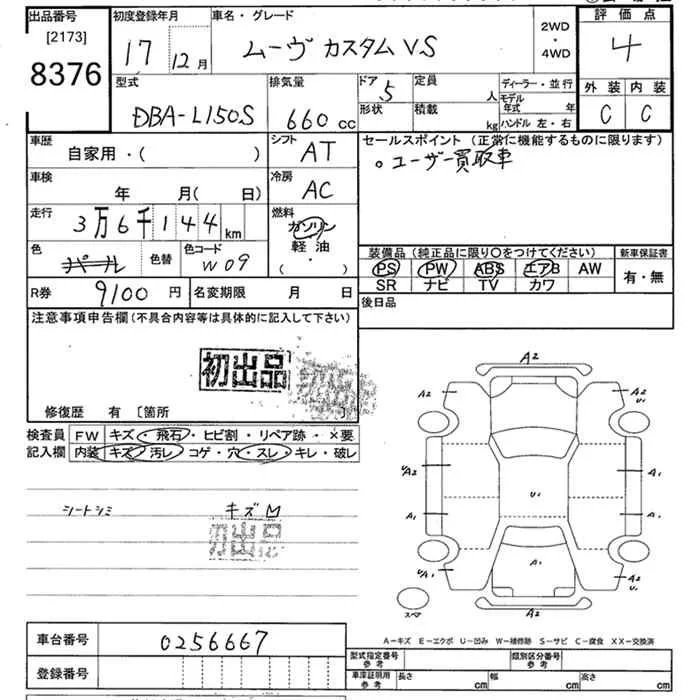 出品番号 初度登録年月 車名・グレード 2WD ・ 4WD 評価点
[2173]
8376 17 12月 ムーヴ カスタム VS 4
型式 排気量 ドア 定員 ディーラー・並行 外装 内装
DBA-L150S 660cc 5 人 モデル年式 年 C C
形状 積載 kg ハンドル 左・右
車歴 自家用・( ) シフト AT セールスポイント (正常に機能するものに限ります)
。ユーザー買取車
車検 年 月( 日) 冷房 AC
走行 3万6千144km 燃料 ガソリン 軽油 ( ・ )
色 パール 色替 色コード W09 装備品 (純正品に限り〇をつけてください) 新車保証書
PS PW ABS エアB AW 有・無
SR ナビ TV カワ
R券 9100円 名変期限 月 日 後日品
注意事項申告欄 (不具合内容等は具体的に記入して下さい)
初出品
修復歴 有 〔箇所 〕
検査員 FW キズ・飛石・ヒビ割・リペア跡・×要
記入欄 内装 キズ・汚レ・コゲ・穴・スレ・キレ・破レ
シートシミ キズM
初出品
A2
A2 A2 U1
UA2 A1
U1
A1 A1
A1
UA1 A2 U1
スペア A2
A-キズ E-エクボ U-凹み W-補修跡 S-サビ C-腐食 XX-交換済
車台番号 0256667
登録番号
型式指定番号 参考 類別区分番号 参考
車庫証明用 参考 長さ cm 幅 cm 高さ cm